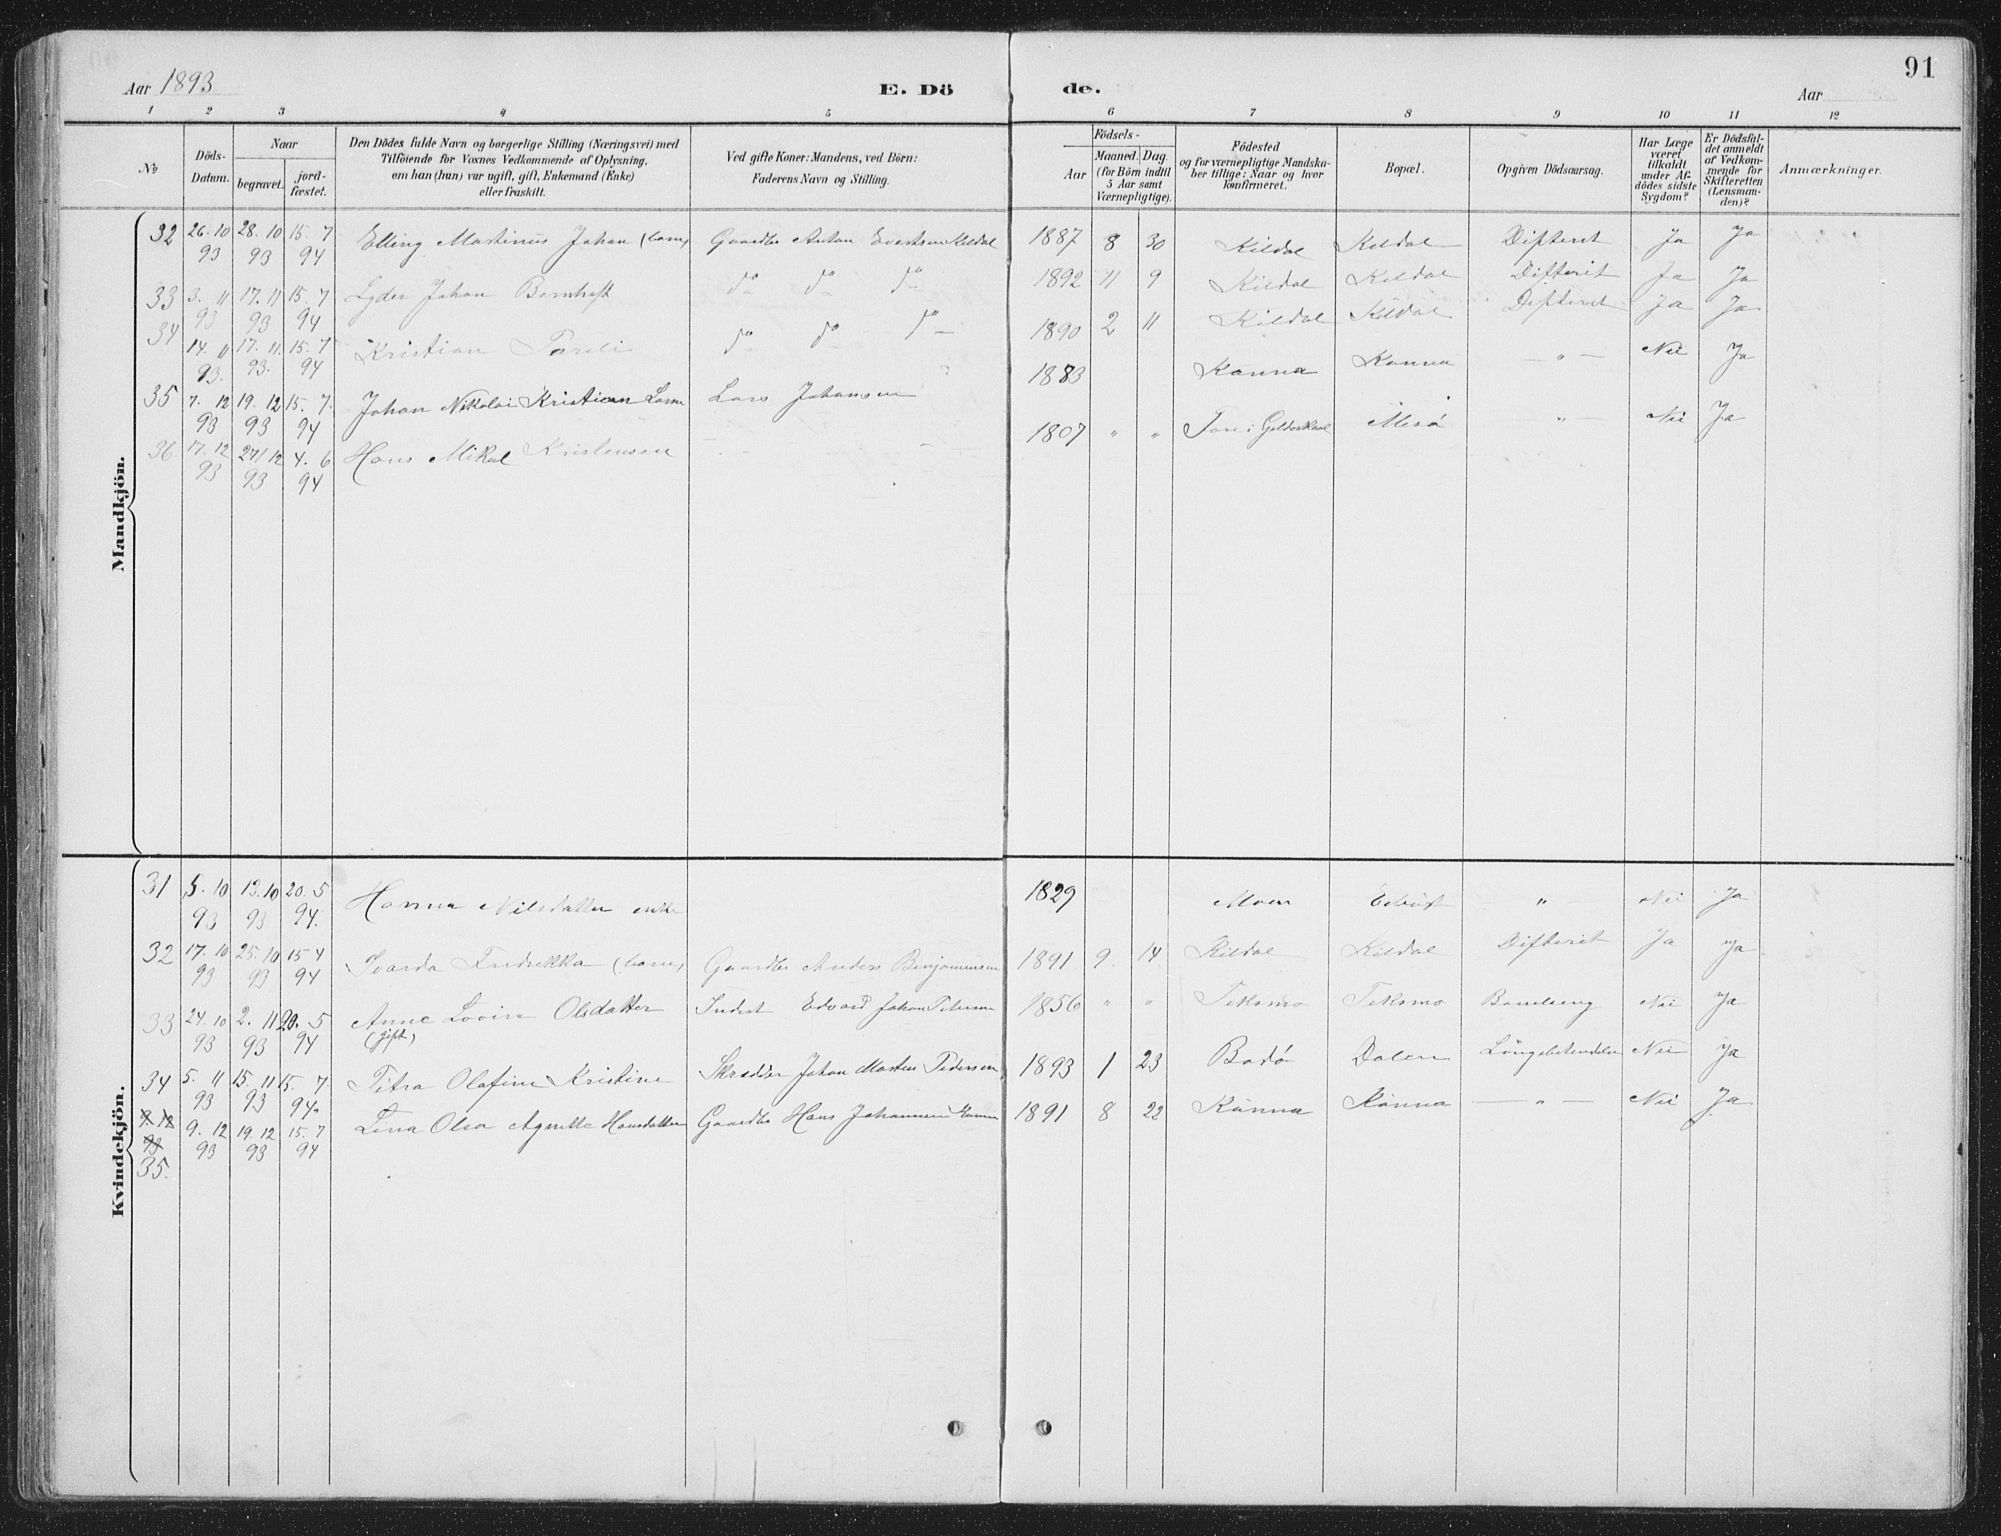 Aar 1893
E. Dö
de.
91
Aar
1 2 3 4 5 6 7 8 9 10 11 12
No
Döds-Datum.
Naar
begravet.
jord-fæstet.
Den Dödes fulde Navn og borgerlige Stilling (Næringsvei) med
Tilföiende for Voxnes Vedkommende af Oplysning,
om han (hun) var ugift, gift, Enkemand (Enke)
eller fraskilt.
Ved gifte Koner: Mandens, ved Börn:
Faderens Navn og Stilling.
Födsels-
Aar
Maaned. Dag.
(for Börn indtil
5 Aar samt
Værnepligtige).
Födested
og for værnepligtige Mandska-
ber tillige: Naar og hvor
konfirmeret.
Bopæl.
Opgiven Dödsaarsag.
Har Læge
været
tilkaldt
under Af-
dödes sidste
Sygdom?
Er Dödsfal-
det anmeldt
af Vedkom-
mende for
Skifteretten
(Lensman-
den)?
Anmærkninger.
Mandkjön.
32 26.10 93 28.10 93 15.7 94 Elling Martinus Johan (barn) Gaardbr Anton Evertsen Kildal 1887 8 30 Kildal Kildal Difterit Ja Ja
33 3.11 93 17.11 93 15.7 94 Lyder Johan Bernhoft do do do 1892 11 9 Kildal Kildal Difterit Ja Ja
34 14.11 93. 17.11 93. 15.7 94 Kristian do do do 1890 2 11 Kildal Kildal Difterit Ja Ja
35 7.12 93 19.12 93 15.7. 94 Johan Nikolai Kristian Lars Johansen 1883 Kanna Kanna — " — Nei Ja
36 17.12 93 27/12 93 4.6 94 Hans Mikal Kristensen 1807 " " i Gildeskaal Mesö " Nei Ja
Kvindekjön.
31 5.10 93 13.10 93 20.5 94. Hanna Nilsdatter enke 1829 Moen " Nei Ja
32 17.10 93 25.10 93 15 4 94 Fredrikka (barn) Gaardbr Anders Benjaminsen 1891 9. 14 Kildal Kildal Difterit Ja Ja
33 24.10 93 2.11 93 20.5 94 Anne Lovise Olsdatter (gift) Inderst Edvard Johan Petersen 1856 " " Teksmo Teksmo Barselseng Nei Ja
34 5.11 93 15.11 93 15.7 94. Petra Olafine Kristine Skrædder Johan Morten Pedersen 1893 1 23 Bodö Dalen Lungebetændelse Nei Ja
9.12 93
35. 9.12 93 19.12 93 15.7 94 Lina Olea Agnette Hansdatter Gaardbr Hans Johannesen 1891 8 22 Kanna Kanna — " — Nei Ja